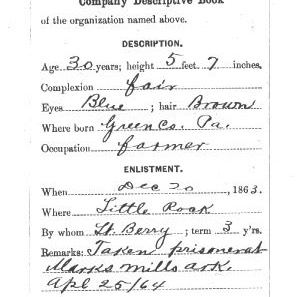 Company Descriptive Book
of the organization named above.
DESCRIPTION.
Age 30 years; height 5 feet 7 inches.
Complexion fair
Eyes Blue; hair Brown
Where born Green Co. Pa.
Occupation farmer
ENLISTMENT.
When Dec 20, 1863.
Where Little Rock
By whom Lt. Berry; term 3 y'rs.
Remarks: Taken prisoner at
Marks mills ark.
Apl 25/64